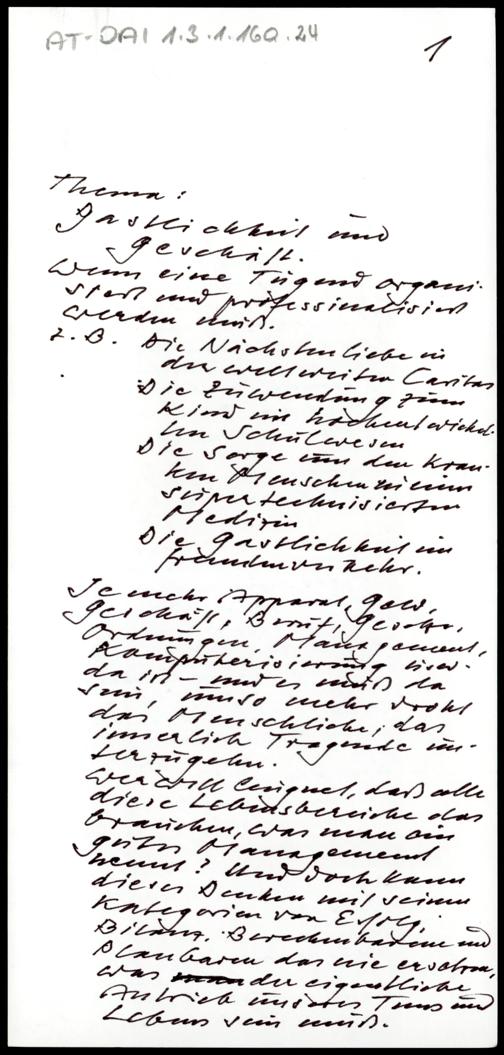 AT-DAI 1.3.1.160.24
1
Thema:
Gastlichkeit und
Geschäft.
Wenn eine Tugend organi-
siert und professionalisiert
werden muß.
z. B. Die Nächstenliebe in
der weltweiten Caritas
Die Zuwendung zum
Kind im hochentwickel-
ten Schulwesen
Die Sorge um den Kran-
ken Menschen in einer
supertechnisierten
Medizin
Die Gastlichkeit im
Fremdenverkehr.
Je mehr Apparat, Geld,
Geschäft, Beruf, Gesetze,
Ordnungen, Management,
Komputerisierung usw.
da ist – und es muß da
sein, umso mehr droht
das Menschliche, das
innerlich Tragende un-
terzugehn.
Wer will leugnen, daß alle
diese Lebensbereiche das
brauchen, was man ein
gutes Management
nennt? Und doch kann
dieses Denken mit seinen
Kategorien von Erfolg,
Bilanz, Berechenbarem und
Planbarem das nie ersetzen,
was der eigentliche
Antrieb unseres Tuns und
Lebens sein muß.